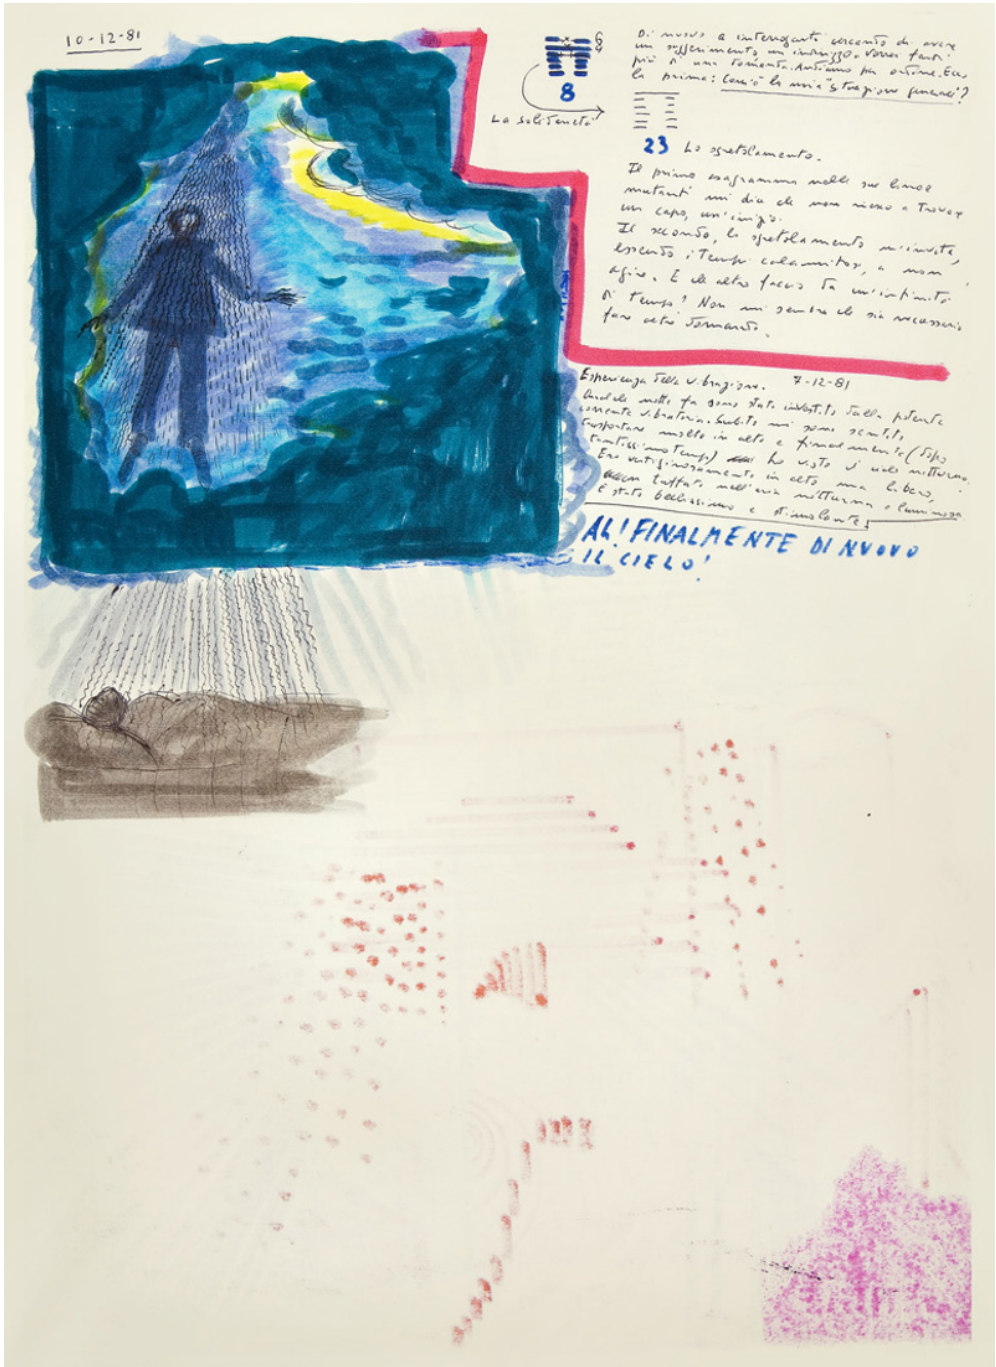 10-12-81
6
9
8
La solidarietà
Di nuovo a interrogarti cercando di avere
un suggerimento un indirizzo. Vorrei farti
più di una domanda. Andiamo per ordine. Ecco
la prima: Cos'è la mia "situazione generale"?
23 Lo sgretolamento.
Il primo esagramma nelle sue linee
mutanti mi dice che non riesco a trovare
un capo, un'inizio.
Il secondo, lo sgretolamento m'invita,
essendo i tempi calamitosi, a non
agire. E che altro faccio da un'infinità
di tempo? Non mi sembra che sia necessario
fare altre domande.
Esperienza della vibrazione. 7-12-81
notte fa sono stato investito dalla potente
corrente vibratoria. Subito mi sono sentito
trasportare molto in alto e finalmente (dopo
tantissimo tempo) ho visto il cielo notturno.
Ero vertiginosamente in alto ma libero,
tuffato nell'aria notturna e luminosa
È stato bellissimo e stimolante!
AH! FINALMENTE DI NUOVO
IL CIELO!